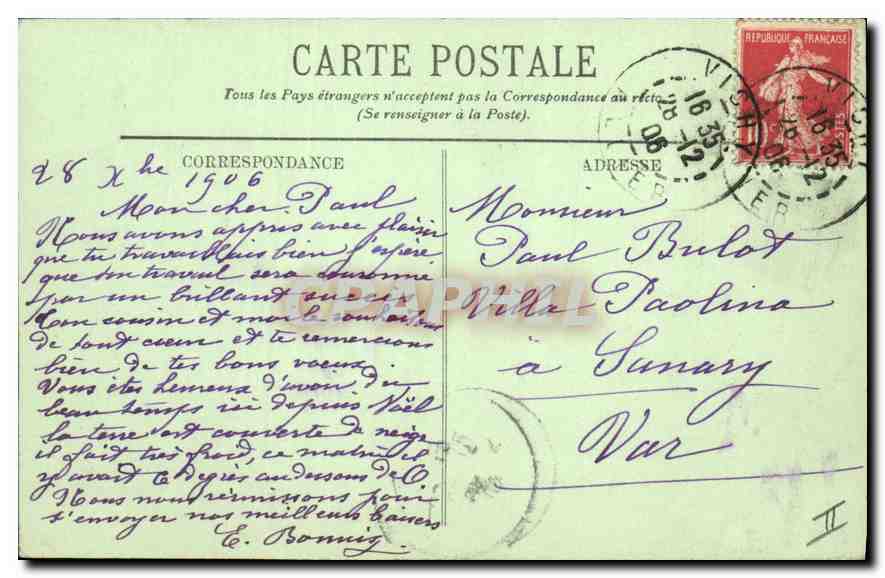 CARTE POSTALE
Tous les Pays étrangers n'acceptent pas la Correspondance au recto
(Se renseigner à la Poste).
REPUBLIQUE FRANÇAISE
VICHY
16 35
28 -12
06
VICHY
16 35
28 -12
06
CORRESPONDANCE
28 Xbre 1906
Mon cher Paul
Nous avons appris avec plaisir
que tu travaillais bien j'espère
que ton travail sera couronné
par un brillant succès
Ton cousin et moi le souhaitons
de tout cœur et te remercions
bien de tes bons voeux
Vous êtes heureux d'avoir du
beau temps ici depuis Noël
la terre est couverte de neige
il fait très froid, ce matin il
y avait 6 degrés au dessous de 0
Nous nous réunissons pour
t'envoyer nos meilleurs baisers
E.
ADRESSE
Monsieur
Paul Bulot
Villa Paolina
à Sanary
Var
II
CPAPHIL